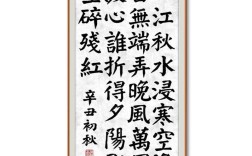 江秋水浸寒空
無端弄晚風萬
心誰折得夕陽
碎殘紅
辛丑初秋